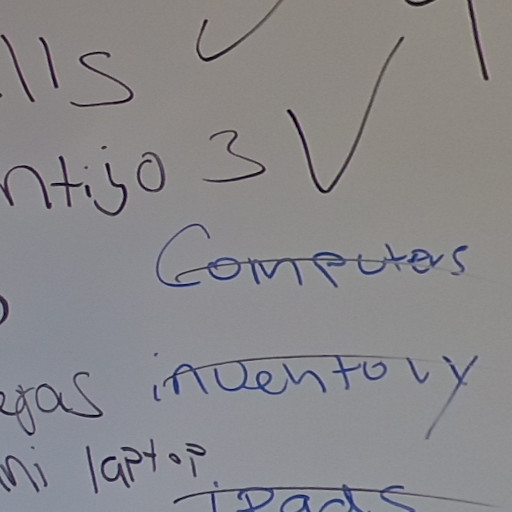 lls
ntijo 3
Computers
egas inventory
mi laptop
ipads